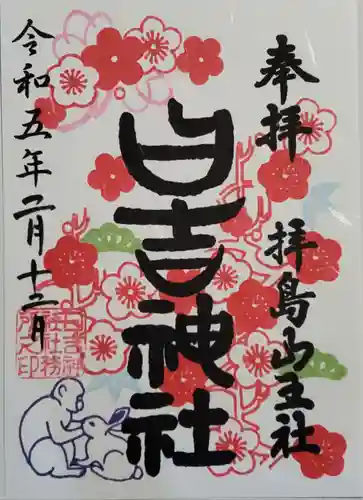 奉拝
拝島山王社
日吉神社
令和五年二月十二日
日吉神
社社務
所之印